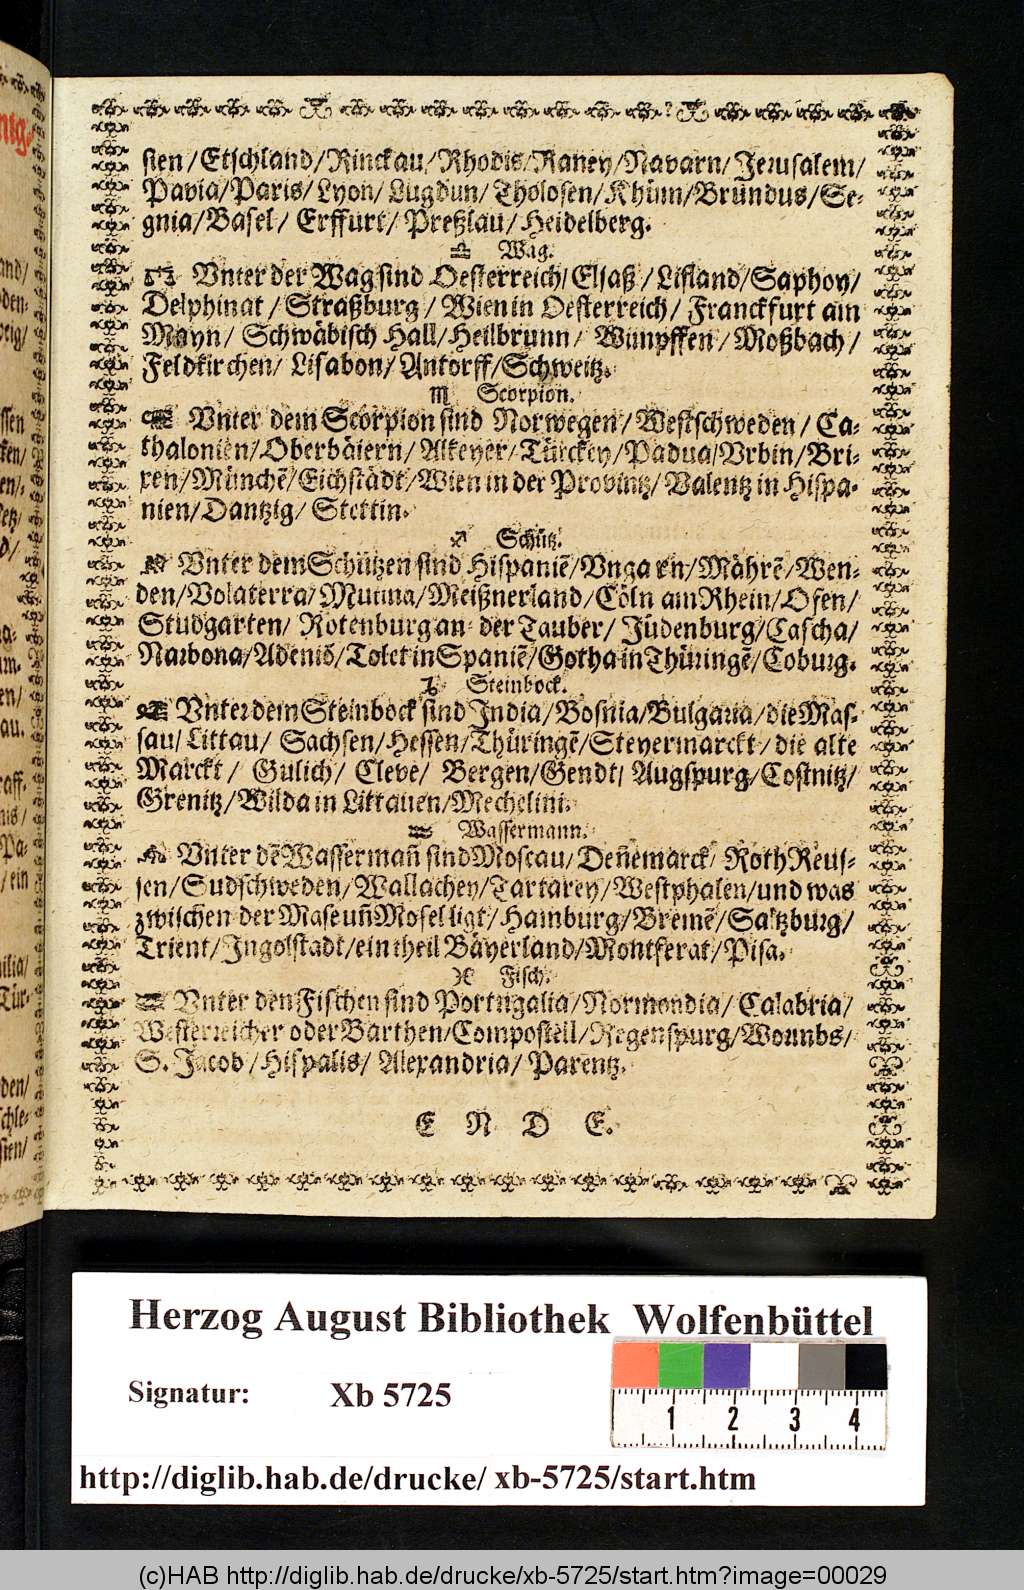 sten/Etschland/Rinckau/Rhodis/Raney/Navarn/Jerusalem/
Pavia/Paris/Lyon/Lugdun/Tholosen/Khüm/Bründus/Se-
gnia/Basel/Erffurt/Preßlau/Heidelberg.
♎ Wag.
Vnter der Wag sind Oesterreich/Elsaß/Lifland/Saphoy/
Delphinat/Straßburg/Wien in Oesterreich/Franckfurt am
Mayn/Schwäbisch Hall/Heilbrunn/Wimpffen/Moßbach/
Feldkirchen/Lisabon/Antorff/Schweitz.
♏ Scorpion.
Vnter dem Scorpion sind Norwegen/Westschweden/Ca-
thalonien/Oberbäiern/Alkeyer/Türckey/Padua/Vrbin/Bri-
xen/Münchē/Eichstädt/Wien in der Provintz/Valentz in Hispa-
nien/Dantzig/Stettin.
♐ Schütz.
Vnter dem Schützen sind Hispaniē/Vngarn/Mährē/Wen-
den/Volaterra/Mutina/Meißnerland/Cöln am Rhein/Ofen/
Studgarten/Rotenburg an der Tauber/Jüdenburg/Cascha/
Narbona/Adeniō/Tolet in Spaniē/Gotha in Thüringē/Coburg.
♑ Steinbock.
Vnter dem Steinbock sind India/Bosnia/Bulgaria/die Mas-
sau/Littau/Sachsen/Hessen/Thüringē/Steyermarckt/die alte
Marckt/Gulich/Cleve/Bergen/Gendt/Augspurg/Costnitz/
Grenitz/Wilda in Littauen/Mechelini.
♒ Wassermann.
Vnter dē Wassermañ sind Moscau/Deñemarck/Roth Reus-
sen/Sudschweden/Wallachey/Tartarey/Westphalen/und was
zwischen der Mase uñ Mosel ligt/Hamburg/Bremē/Saltzburg/
Trient/Ingolstadt/ein theil Bäyerland/Montferat/Pisa.
♓ Fisch.
Vnter den Fischen sind Portugalia/Normondia/Calabria/
Westerreicher oder Barthen/Compostell/Regenspurg/Wormbs/
S. Jacob/Hispalis/Alexandria/Parentz.
E N D E.
Herzog August Bibliothek Wolfenbüttel
Signatur: Xb 5725
1 2 3 4
http://diglib.hab.de/drucke/ xb-5725/start.htm
(c)HAB http://diglib.hab.de/drucke/xb-5725/start.htm?image=00029